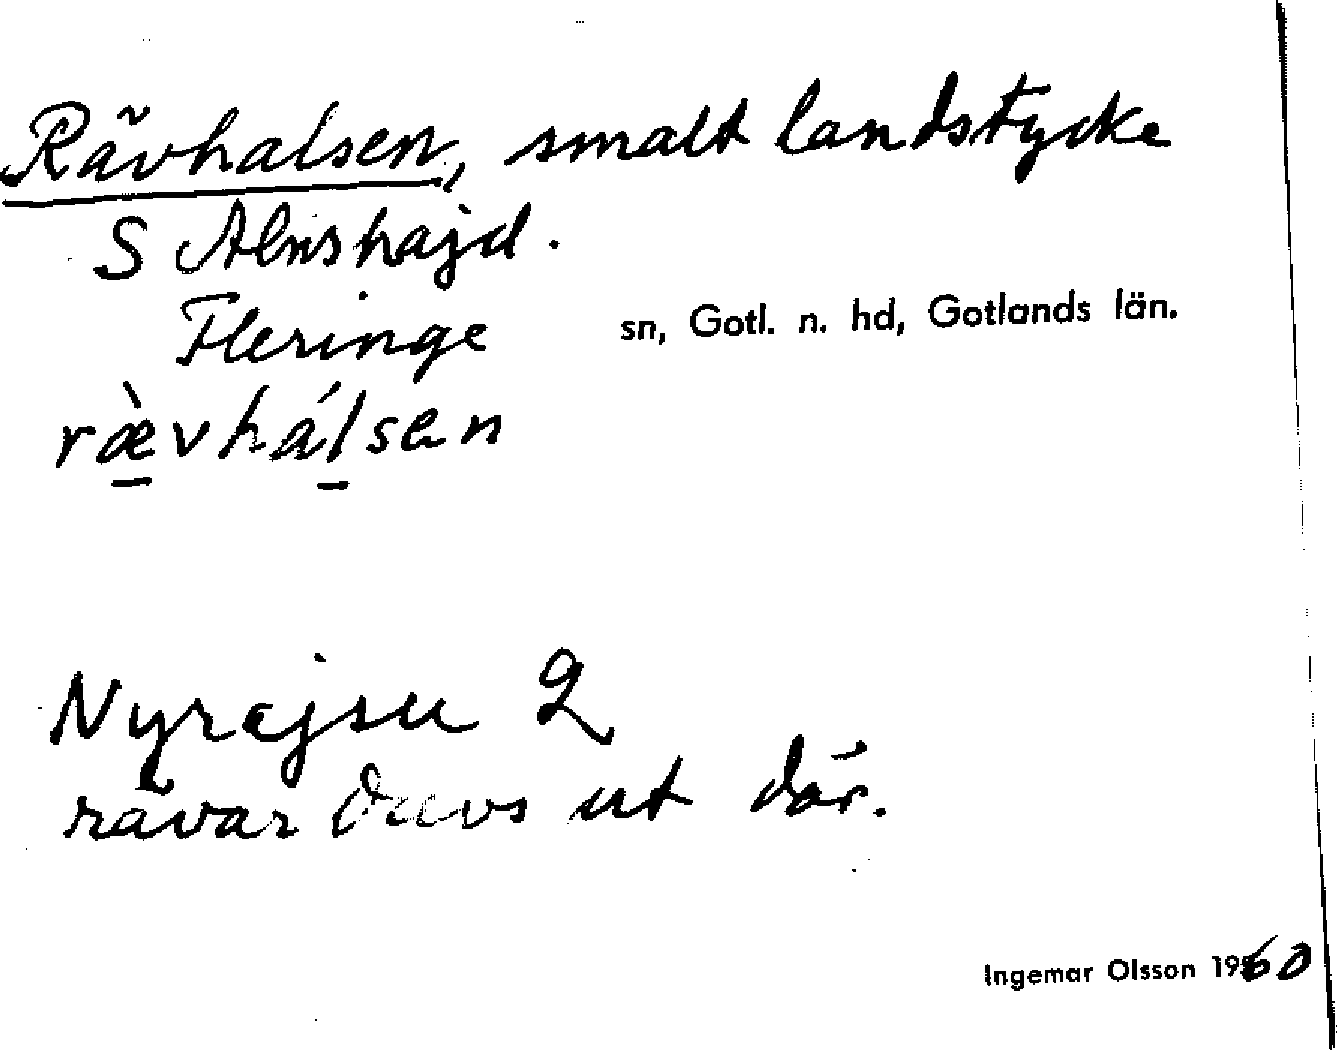 Rävhalsen, smalt landstycke
S Alnshajd.
Fleringe sn, Gotl. n. hd, Gotlands län.
ræ̀vhálsen
Nyrejsu 2
rävar drevs ut där.
Ingemar Olsson 1960